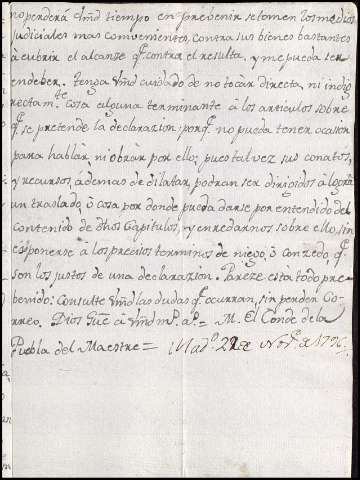 no penderá Vmd tiempo en prebenir se tomen los medios
judiciales mas convenientes, contra sus bienes bastantes
à cubrir el alcanze q.e contra el resulta, y me pueda ser
en deber. tenga Vmd cuidado de no tocàr directa, ni indi
rectam.te cosa alguna terminante à los articulos sobre
q.e se pretende la declarazion porq.e no pueda tener ocasion
para hablàr ni obràr por ello; pues tal vez sus conatos,
y recursos, àdemas de dilatar, podran ser dirigidos à lográr
un traslado, ò cosa por donde pueda darse por entendido del
Contenido de dhos Capitulos, y enredarnos sobre ello, sin
esponerse à los precisos terminos de niego, ò conzedo q.e
son los justos de una declarazion. Pareze està todo pre
benido: Consulte Vmd las dudas q.e ocurran, sin perder Co-
rreo. Dios Gue à Vmd m.s a.s = M. El Conde de la
Puebla del Maestre = Mad.d 22 de Nov.e de